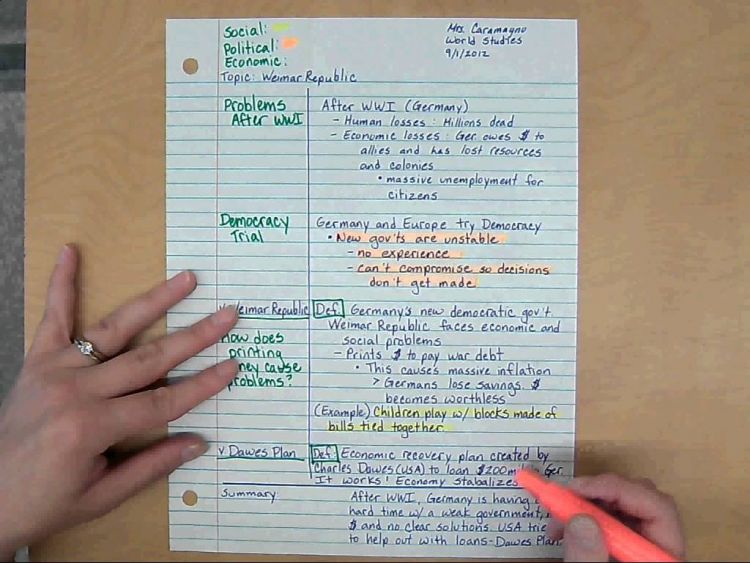 Social:
Political:
Economic:
Mrs. Caramagno
World Studies
9/1/2012
Topic: Weimar Republic
Problems
After WWI
After WWI (Germany)
- Human losses: Millions dead
- Economic losses: Ger owes $ to
allies and has lost resources
and colonies
• massive unemployment for
citizens
Democracy
Trial
Germany and Europe try Democracy
• New gov'ts are unstable
- no experience
- can't compromise so decisions
don't get made
Weimar Republic
Def: Germany's new democratic gov't.
Weimar Republic faces economic and
social problems
How does
printing
cause
problems?
- Prints $ to pay war debt
• This causes massive inflation
> Germans lose savings. $
becomes worthless
(Example) Children play w/ blocks made of
bills tied together.
v Dawes Plan
Def: Economic recovery plan created by
Charles Dawes (USA) to loan $200 mil Ger.
It works! Economy stabalizes
Summary:
After WWI, Germany is having
hard time w/ a weak government,
$ and no clear solutions. USA
to help out with loans-Dawes Plan.